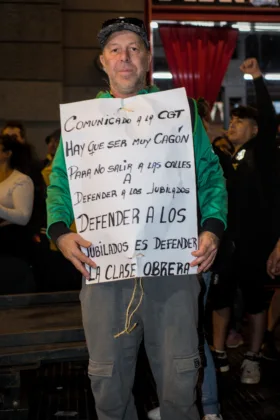 COMUNICADO A LA CGT
HAY QUE SER MUY CAGÓN
PARA NO SALIR A LAS CALLES
A
DEFENDER A LOS JUBILADOS
DEFENDER A LOS
JUBILADOS ES DEFENDER
LA CLASE OBRERA